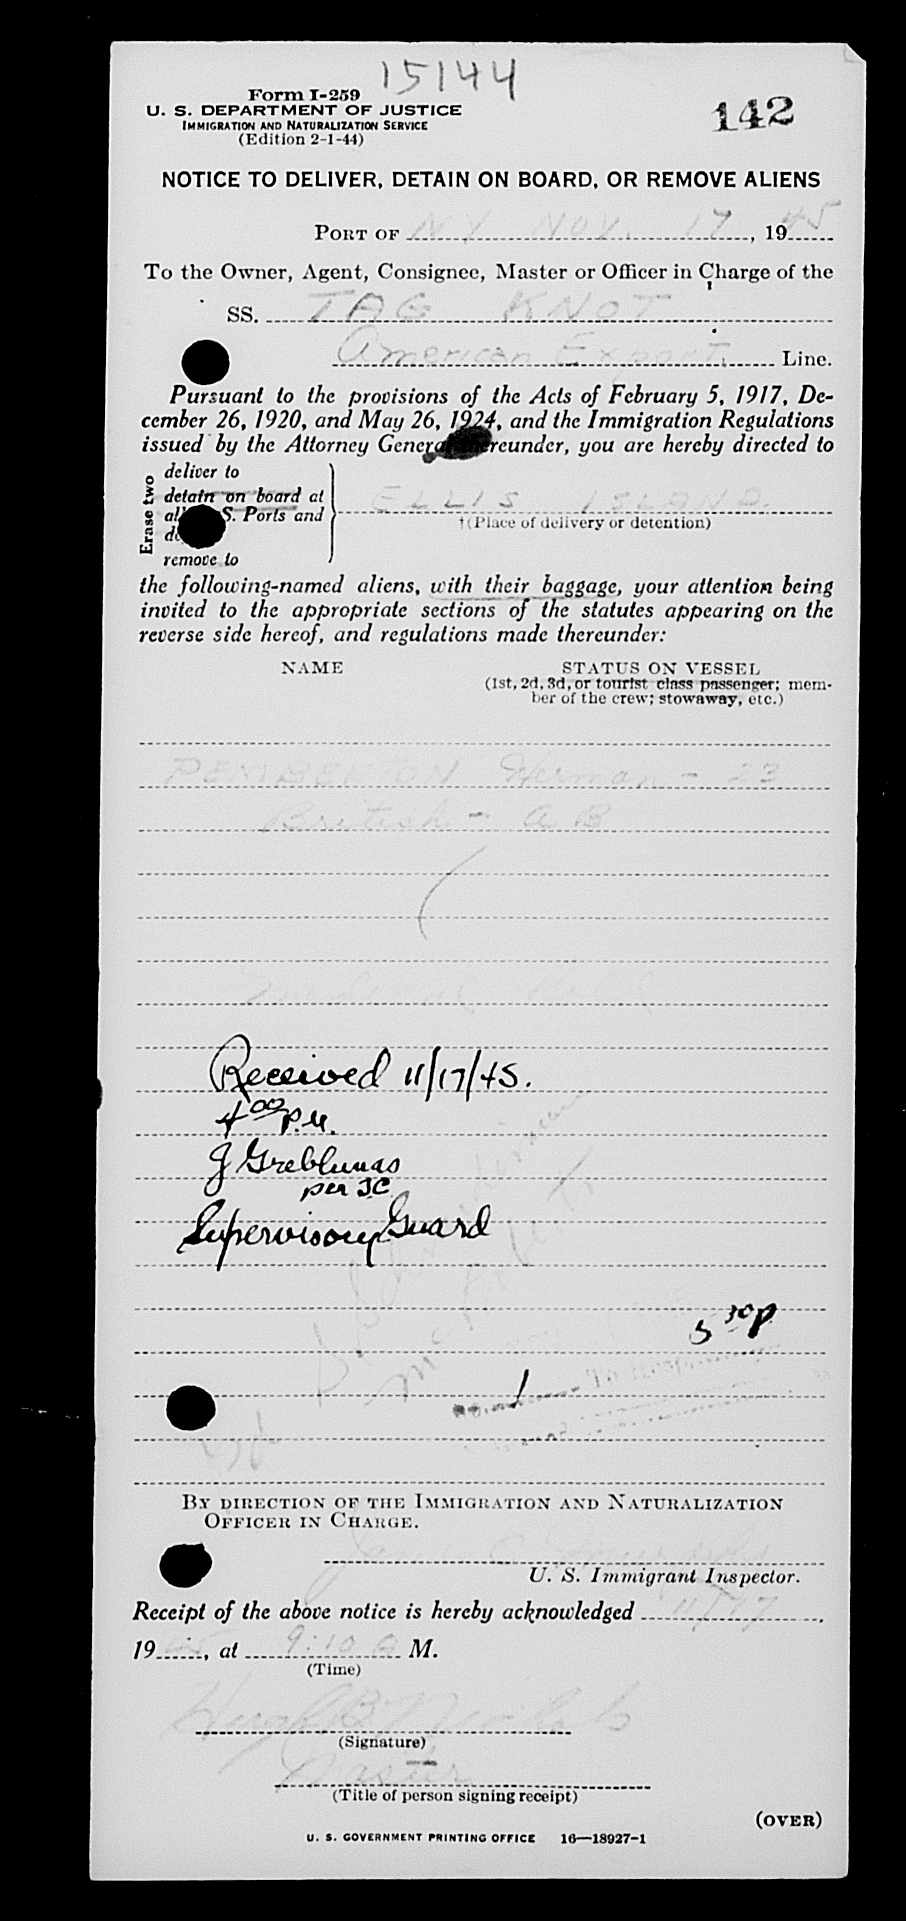 15144
Form I-259
142
U. S. DEPARTMENT OF JUSTICE
IMMIGRATION AND NATURALIZATION SERVICE
(Edition 2-1-44)
NOTICE TO DELIVER, DETAIN ON BOARD, OR REMOVE ALIENS
PORT OF NY NOV. 17, 1945
To the Owner, Agent, Consignee, Master or Officer in Charge of the
SS. TAG KNOT
American Export Line.
Pursuant to the provisions of the Acts of February 5, 1917, De-
cember 26, 1920, and May 26, 1924, and the Immigration Regulations
issued by the Attorney General thereunder, you are hereby directed to
Erase two
deliver to
detain on board at
all U. S. Ports and
remove to
ELLIS ISLAND.
†(Place of delivery or detention)
the following-named aliens, with their baggage, your attention being
invited to the appropriate sections of the statutes appearing on the
reverse side hereof, and regulations made thereunder:
NAME STATUS ON VESSEL
(1st, 2d, 3d, or tourist class passenger; mem-
ber of the crew; stowaway, etc.)
PEMBERTON Herman - 23
British - AB
Received 11/17/45.
4 00 P.M.
J Greblunas
per JC
Supervisory Guard
5 30 P
BY DIRECTION OF THE IMMIGRATION AND NATURALIZATION
OFFICER IN CHARGE.
U. S. Immigrant Inspector.
Receipt of the above notice is hereby acknowledged 11/17,
1945, at 9:10 A M.
(Time)
Hugh B.
(Signature)
Master
(Title of person signing receipt)
(OVER)
U. S. GOVERNMENT PRINTING OFFICE 16—18927-1